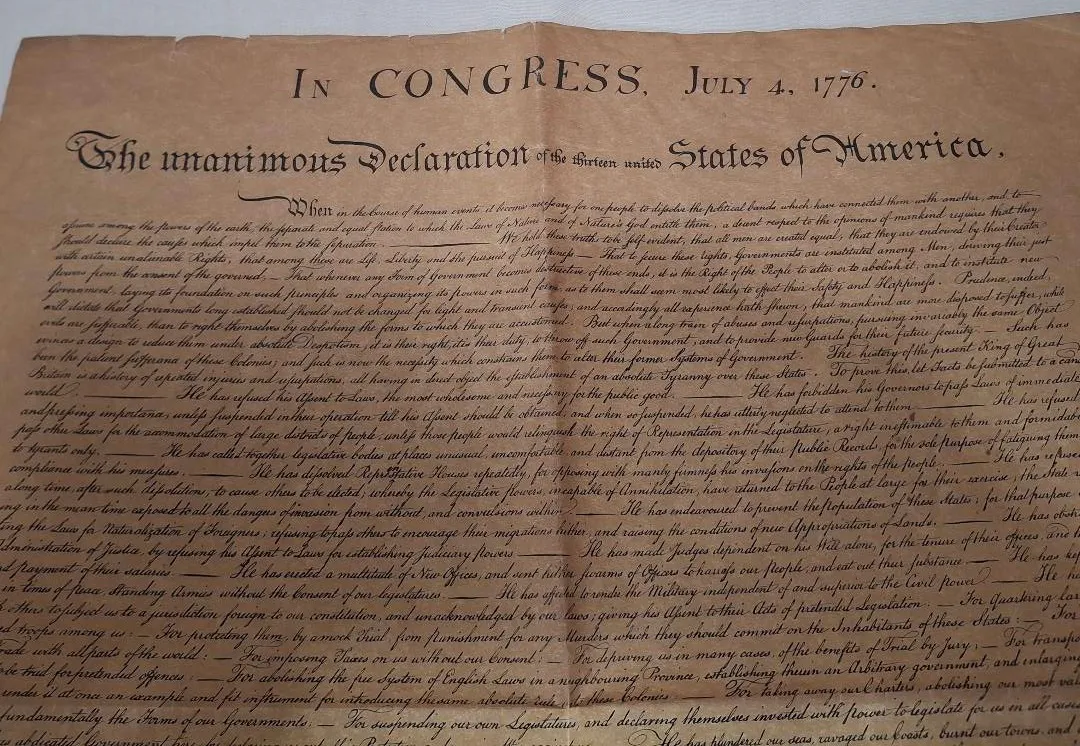 IN CONGRESS, JULY 4, 1776.
The unanimous Declaration of the thirteen united States of America.
When in the Course of human events, it becomes necessary for one people to dissolve the political bands which have connected them with another, and to
assume among the powers of the earth, the separate and equal station to which the Laws of Nature and of Nature's God entitle them, a decent respect to the opinions of mankind requires that they
should declare the causes which impel them to the separation. We hold these truths to be self-evident, that all men are created equal, that they are endowed by their Creator
with certain unalienable Rights, that among these are Life, Liberty and the pursuit of Happiness — That to secure these rights, Governments are instituted among Men, deriving their just
powers from the consent of the governed, — That whenever any Form of Government becomes destructive of these ends, it is the Right of the People to alter or to abolish it, and to institute new
Government, laying its foundation on such principles and organizing its powers in such form, as to them shall seem most likely to effect their Safety and Happiness. Prudence, indeed,
will dictate that Governments long established should not be changed for light and transient causes; and accordingly all experience hath shewn, that mankind are more disposed to suffer, while
evils are sufferable, than to right themselves by abolishing the forms to which they are accustomed. But when a long train of abuses and usurpations, pursuing invariably the same Object
evinces a design to reduce them under absolute Despotism, it is their right, it is their duty, to throw off such Government, and to provide new Guards for their future security. — Such has
been the patient sufferance of these Colonies; and such is now the necessity which constrains them to alter their former Systems of Government. The history of the present King of Great
Britain is a history of repeated injuries and usurpations, all having in direct object the establishment of an absolute Tyranny over these States. To prove this, let Facts be submitted to a
world. He has refused his Assent to Laws, the most wholesome and necessary for the public good. He has forbidden his Governors to pass Laws of immediate
and pressing importance, unless suspended in their operation till his Assent should be obtained, and when so suspended, he has utterly neglected to attend to them He has refused
pass other Laws for the accommodation of large districts of people, unless those people would relinquish the right of Representation in the Legislature, a right inestimable to them and
to tyrants only. He has called together legislative bodies at places unusual, uncomfortable, and distant from the depository of their Public Records, for the sole purpose of fatiguing them
compliance with his measures. He has dissolved Representative Houses repeatedly, for opposing with manly firmness his invasions on the rights of the people. He has
a long time, after such dissolutions, to cause others to be elected; whereby the Legislative powers, incapable of Annihilation, have returned to the People at large for their exercise; the State
in the mean time exposed to all the dangers of invasion from without, and convulsions within. He has endeavoured to prevent the population of these States; for that purpose
the Laws for Naturalization of Foreigners; refusing to pass others to encourage their migrations hither, and raising the conditions of new Appropriations of Lands. He has
of Justice, by refusing his Assent to Laws for establishing Judiciary powers He has made Judges dependent on his Will alone, for the tenure of their offices, and
payment of their salaries. He has erected a multitude of New Offices, and sent hither swarms of Officers to harrass our people, and eat out their substance. — He has
in times of peace, Standing Armies without the Consent of our legislatures. He has affected to render the Military independent of and superior to the Civil power. He
others to subject us to a jurisdiction foreign to our constitution, and unacknowledged by our laws; giving his Assent to their Acts of pretended Legislation: — For Quartering
troops among us: — For protecting them, by a mock Trial, from Punishment for any Murders which they should commit on the Inhabitants of these States: — For
with all parts of the world: — For imposing Taxes on us without our Consent: — For depriving us in many cases, of the benefits of Trial by Jury: — For
be tried for pretended offences: — For abolishing the free System of English Laws in a neighbouring Province, establishing therein an Arbitrary government, and enlarging
under it at once an example and fit instrument for introducing the same absolute rule to these Colonies — For taking away our Charters, abolishing our most
fundamentally the Forms of our Governments: — For suspending our own Legislatures, and declaring themselves invested with power to legislate for us in all cases
abdicated Government He has plundered our seas, ravaged our Coasts, burnt our towns, and